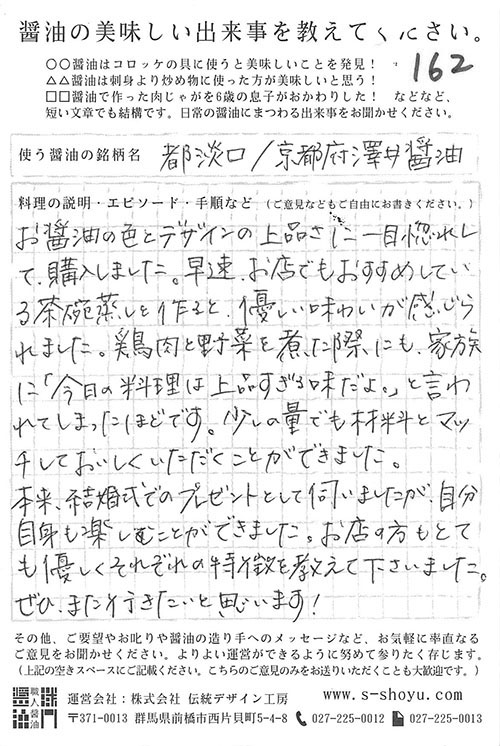 醤油の美味しい出来事を教えてください。
○○醤油はコロッケの具に使うと美味しいことを発見！
162
△△醤油は刺身より炒め物に使った方が美味しいと思う！
□□醤油で作った肉じゃがを6歳の息子がおかわりした！ などなど、
短い文章でも結構です。日常の醤油にまつわる出来事をお聞かせください。
使う醤油の銘柄名 都淡口/京都府澤井醤油
料理の説明・エピソード・手順など （ご意見などもご自由にお書きください。）
お醤油の色とデザインの上品さに一目惚れし
て、購入しました。早速、お店でもおすすめしてい
る茶碗蒸しを作ると、優しい味わいが感じら
れました。鶏肉と野菜を煮た際にも、家族
に「今日の料理は上品すぎる味だよ。」と言わ
れてしまったほどです。少しの量でも材料とマッ
チしておいしくいただくことができました。
本来、結婚式でのプレゼントとして伺いましたが、自分
自身も楽しむことができました。お店の方もとて
も優しくそれぞれの特徴を教えて下さいました。
ぜひ、また行きたいと思います！
その他、ご要望やお叱りや醤油の造り手へのメッセージなど、お気軽に率直なる
ご意見をお聞かせください。よりよい運営ができるように努めて参りたく存じます。
（上記の空きスペースにご記載ください。こちらのご意見のみをお送りいただくことも大歓迎です。）
職人醤油
運営会社：株式会社 伝統デザイン工房 www.s-shoyu.com
〒371-0013 群馬県前橋市西片貝町5-4-8 027-225-0012 027-225-0013